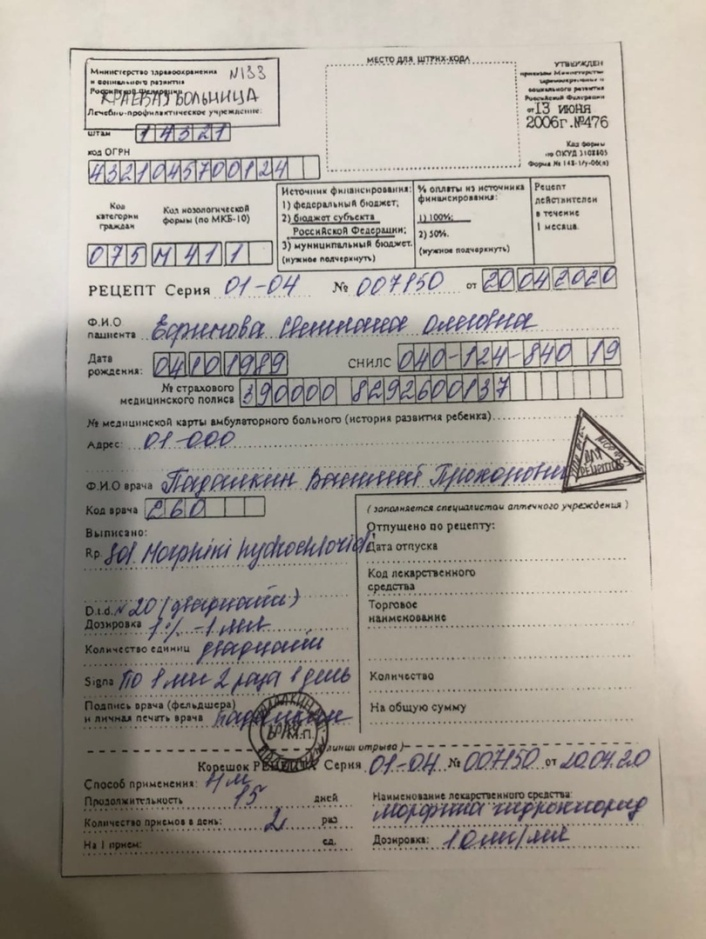 МЕСТО ДЛЯ ШТРИХ-КОДА
Министерство здравоохранения
и социального развития
Российской Федерации
N133
КРАЕВАЯ БОЛЬНИЦА
Лечебно-профилактическое учреждение:
штамп
14321
УТВЕРЖДЕН
приказом Министерства
здравоохранения и
социального развития
Российской Федерации
от 13 июня
2006г. №476
Код формы
по ОКУД 3108805
Форма № 148-1/у-06(л)
код ОГРН
4321045700124
Код
категории
граждан
075
Код нозологической
формы (по МКБ-10)
М411
Источник финансирования:
1) федеральный бюджет;
2) бюджет субъекта
Российской Федерации;
3) муниципальный бюджет.
(нужное подчеркнуть)
% оплаты из источника
финансирования:
1) 100%;
2) 50%.
(нужное подчеркнуть)
Рецепт
действителен
в течение
1 месяца.
РЕЦЕПТ Серия 01-04 № 007150 от 20042020
Ф.И.О
пациента Ефимова Светлана Олеговна
Дата
рождения: 04101989 СНИЛС 040-124-840 19
№ страхового
медицинского полиса 390000 8292600137
№ медицинской карты амбулаторного больного (история развития ребенка)
Адрес: 01-000
Ф.И.О врача Падалкин Василий
Код врача 260
Выписано:
Rp. Sol. Morphini hydrochloridi
D.t.d. N 20 (двадцать)
Дозировка 1% - 1 мл
Количество единиц двадцать
Signa По 1 мл 2 раза в день
Подпись врача (фельдшера)
и личная печать врача Падалкин
ВРАЧ
М.П.
ДЛЯ
РЕЦЕПТОВ
( заполняется специалистом аптечного учреждения )
Отпущено по рецепту:
Дата отпуска
Код лекарственного
средства
Торговое
наименование
Количество
На общую сумму
(линия отрыва)
Корешок РЕЦЕПТА Серия 01-04 № 007150 от 20.04.20
Способ применения:
Продолжительность 15 дней
Количество приемов в день: 2 раз
На 1 прием: ед.
Наименование лекарственного средства:
Морфина гидрохлорид
Дозировка: 10 мг/мл